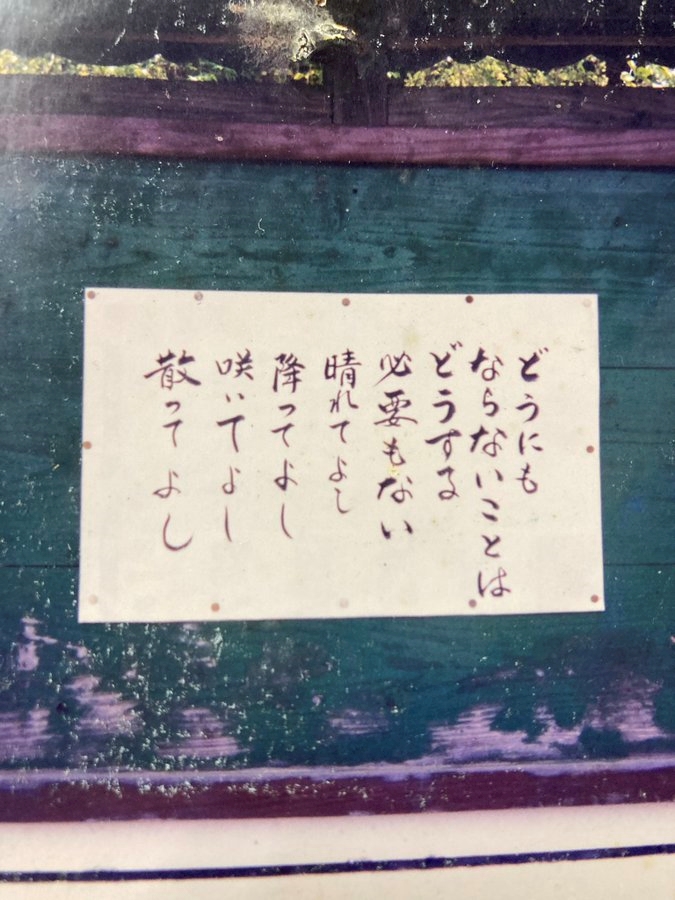 どうにも
ならないことは
どうする
必要もない
晴れてよし
降ってよし
咲いてよし
散ってよし